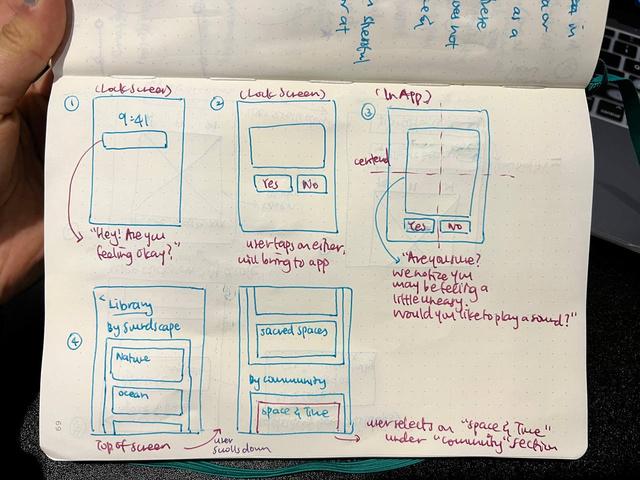 (Lock Screen)
①
9:41
"Hey! Are you
feeling okay?"
(Lock Screen)
②
Yes No
user taps on either,
will bring to app
(In App)
③
centered
Yes No
"Are you fine?
we notice you
may be feeling a
little uneasy.
Would you like to play a sound?"
④
< Library
By Sundscape
Nature
ocean
Top of screen
user
scrolls down
sacred spaces
By community
space & Time
user selects on "space & Time"
under "community" section
69